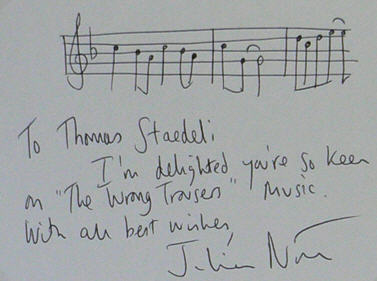 To Thomas Staedeli,
I'm delighted you're so keen
on "The Wrong Trousers" music.
With all best wishes,
Julian N